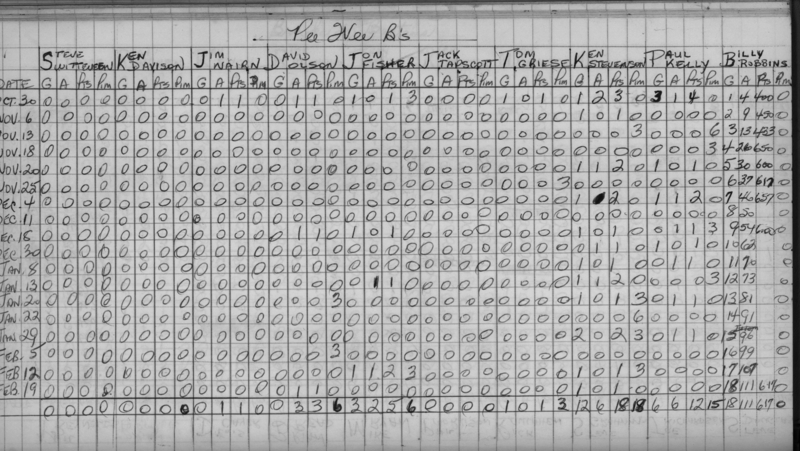 Pee Wee B's
STEVE WITTEVEEN KEN DAVISON JIM NAIRN DAVID OLSON JON FISHER JACK TAPSCOTT TOM GRIESE KEN STEVENSON PAUL KELLY BILLY ROBBINS
DATE G A Pts Pim G A Pts Pim G A Pts Pim G A Pts Pim G A Pts Pim G A Pts Pim G A Pts Pim G A Pts Pim G A Pts Pim G A Pim
OCT. 30 0 0 0 0 0 0 0 0 0 1 1 0 0 1 1 0 1 0 1 3 0 0 0 0 1 0 1 0 1 2 3 0 3 1 4 0 1 4 400 0
NOV. 6 0 0 0 0 0 0 0 0 0 0 0 0 0 0 0 0 0 0 0 0 0 0 0 0 0 0 0 0 1 0 1 0 0 0 0 0 2 9 450 0
NOV. 13 0 0 0 0 0 0 0 0 0 0 0 0 0 0 0 0 0 0 0 0 0 0 0 0 0 0 0 0 0 0 0 3 0 0 0 6 3 13 433 0
NOV. 18 0 0 0 0 0 0 0 0 0 0 0 0 0 0 0 0 0 0 0 0 0 0 0 0 0 0 0 0 0 0 0 0 0 0 0 3 4 26 650 0
NOV. 20 0 0 0 0 0 0 0 0 0 0 0 0 0 0 0 0 0 0 0 0 0 0 0 0 0 0 0 0 1 1 2 0 1 0 1 0 5 30 600 0
NOV. 25 0 0 0 0 0 0 0 0 0 0 0 0 0 0 0 0 0 0 0 0 0 0 0 0 0 0 0 3 0 0 0 0 0 0 0 0 6 37 617 0
DEC. 4 0 0 0 0 0 0 0 0 0 0 0 0 0 0 0 0 0 0 0 0 0 0 0 0 0 0 0 0 1 2 0 1 1 2 0 7 46 657 0
DEC. 11 0 0 0 0 0 0 0 0 0 0 0 0 0 0 0 0 0 0 0 0 0 0 0 0 0 0 0 0 0 0 0 0 0 0 0 0 8 50 0
DEC. 15 0 0 0 0 0 0 0 0 0 0 0 0 0 1 1 0 1 0 1 0 0 0 0 0 0 0 0 0 1 0 1 0 0 1 1 3 9 54 600 0
DEC. 30 0 0 0 0 0 0 0 0 0 0 0 0 0 0 0 0 0 0 0 0 0 0 0 0 0 0 0 0 0 1 1 0 1 0 1 0 10 62 0
JAN. 8 0 0 0 0 0 0 0 0 0 0 0 0 0 0 0 0 0 0 0 0 0 0 0 0 0 0 0 0 1 0 1 0 0 1 1 0 11 70 0
JAN. 13 0 0 0 0 0 0 0 0 0 0 0 0 0 0 0 0 0 1 1 0 0 0 0 0 0 0 0 0 1 1 2 0 0 0 0 3 12 73 0
JAN. 20 0 0 0 0 0 0 0 0 0 0 0 0 0 0 0 3 0 0 0 0 0 0 0 0 0 0 0 0 1 0 1 3 0 1 1 0 13 81 0
JAN. 22 0 0 0 0 0 0 0 0 0 0 0 0 0 0 0 0 0 0 0 0 0 0 0 0 0 0 0 0 0 0 0 6 0 0 0 0 14 91 0
JAN. 29 0 0 0 0 0 0 0 0 0 0 0 0 0 0 0 0 0 0 0 0 0 0 0 0 0 0 0 0 2 0 2 3 0 1 1 0 15 96 0
FEB. 5 0 0 0 0 0 0 0 0 0 0 0 0 0 0 0 3 0 0 0 0 0 0 0 0 0 0 0 0 0 0 0 0 0 0 0 0 16 99 0
FEB. 12 0 0 0 0 0 0 0 0 0 0 0 0 0 0 0 0 1 1 2 3 0 0 0 0 0 0 0 0 1 0 1 3 0 0 0 0 17 107 0
FEB. 19 0 0 0 0 0 0 0 0 0 0 0 0 0 1 1 0 0 0 0 0 0 0 0 0 0 0 0 0 1 0 1 0 0 0 0 0 18 111 617 0
0 0 0 0 0 0 0 0 0 1 1 0 0 3 3 6 3 2 5 6 0 0 0 0 1 0 1 3 12 6 18 18 6 6 12 15 18 111 617 0